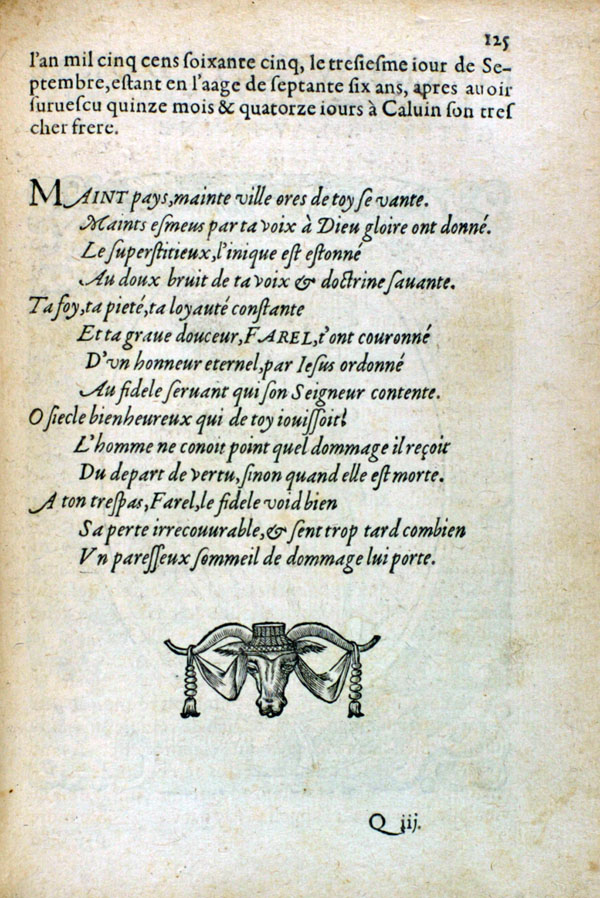 125
l'an mil cinq cens soixante cinq, le tresiesme iour de Se-
ptembre, estant en l'aage de septante six ans, apres auoir
suruescu quinze mois & quatorze iours à Caluin son tres
cher frere.
MAINT pays, mainte ville ores de toy se vante.
Maints esmeus par ta voix à Dieu gloire ont donné.
Le superstitieux, l'inique est estonné
Au doux bruit de ta voix & doctrine sauante.
Ta foy, ta pieté, ta loyauté constante
Et ta graue douceur, FAREL, t'ont couronné
D'vn honneur eternel, par Iesus ordonné
Au fidele seruant qui son Seigneur contente.
O siecle bienheureux qui de toy iouissoit!
L'homme ne conoit point quel dommage il reçoit
Du depart de vertu, sinon quand elle est morte.
A ton trespas, Farel, le fidele void bien
Sa perte irrecouurable, & sent trop tard combien
Vn paresseux sommeil de dommage lui porte.
Q iij.